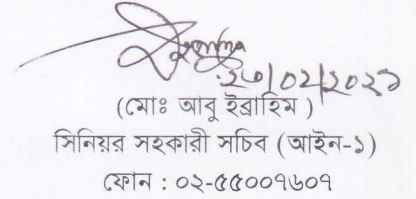 ২৩/০২/২০২১
(মোঃ আবু ইব্রাহিম )
সিনিয়র সহকারী সচিব (আইন-১)
ফোন : ০২-৫৫০০৭৬০৭